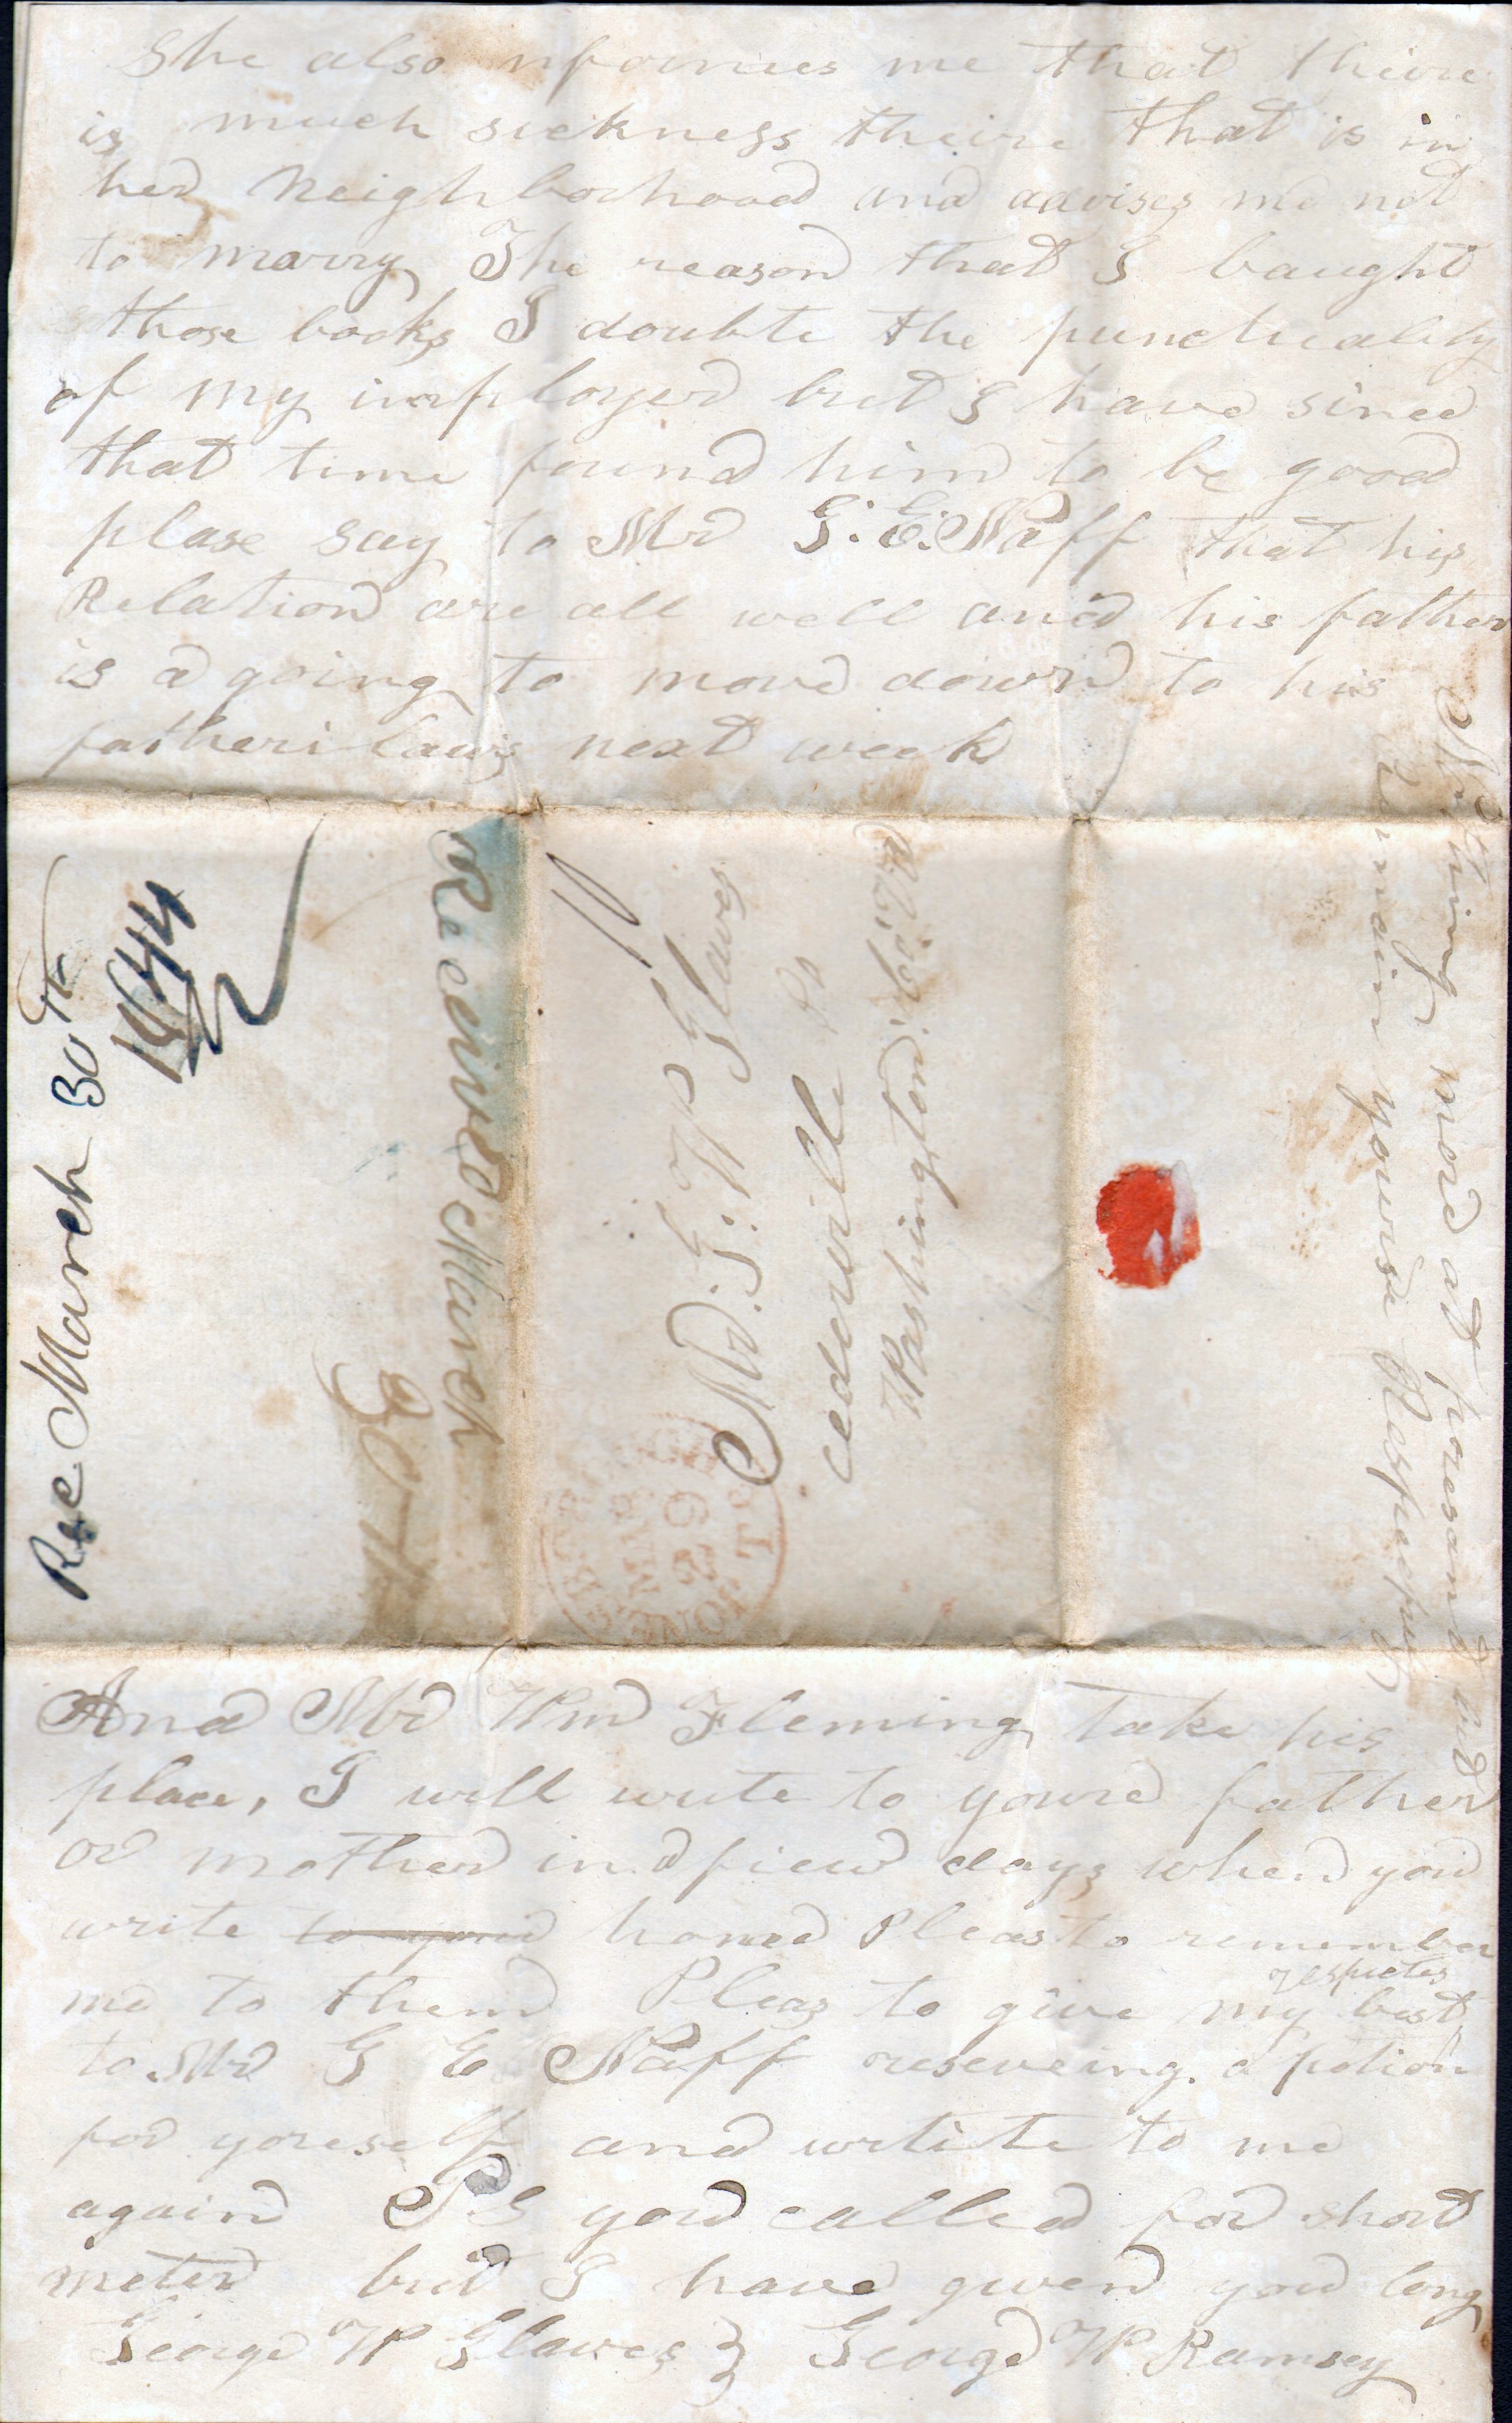 She also nformes me that theire
is much sickness theire that is in
her Neighborhood and advises me not
to marry The reason that I baught
those books I doubte the punctuality
of my imployer but I have since
that time found him to be good
plase say to Mr G. E. Naff that his
Relation are all well and his father
is a going to move down to his
father i laws next week
Nothing more at presant but
Remain yourse Respectfuly
Mr. G. W Glaves
cedarville Po
Washington. Co. Va
JONESBORO
TEN
MAR
Received March
30th
Rec March 30th
1844
And Mr Wm Fleming take his
place, I will write to youre father
or mother in a fiew days when you
write to your home Pleas to remember
me to them Pleas to give my best
respectes
to Mr G E Naff reseveing. a potion
for yoreself and writite to me
again P S you called for short
meter but I have given you long
George W Glaves } George W Ramsey